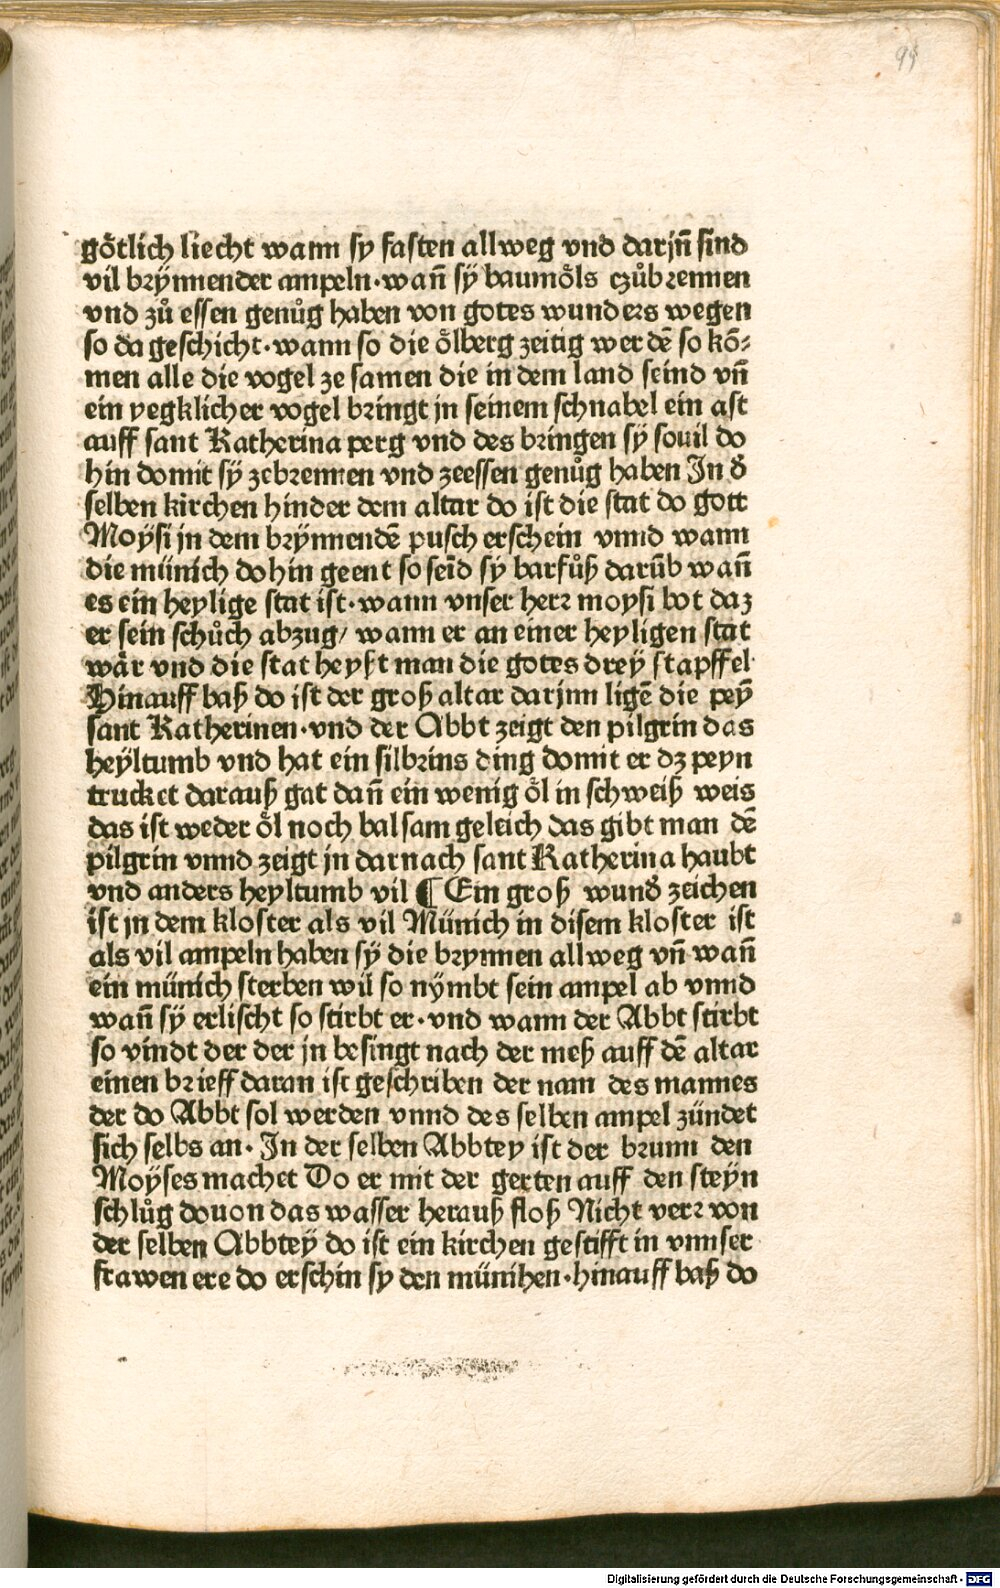 94
götlich liecht wann sy fasten allweg vnd darjn̄ sind
vil brÿnnender ampeln·wan̄ sÿ baumöls czůbrennen
vnd zů essen genůg haben von gotes wunders wegen
so da geschicht·wann so die ölberg zeitig werdē so kō⸗
men alle die vogel ze samen die in dem land seind vn̄
ein yegklicher vogel bringt jn seinem schnabel ein ast
auff sant Katherina perg vnd des bringen sÿ souil do
hin domit sÿ zebrennen vnd zeessen genůg haben In d̓
selben kirchen hinder dem altar do ist die stat do gott
Moÿsi jn dem brÿnnendē pusch erschein vnnd wann
die münich dohin geent so seīd sÿ barfůß darūb wan̄
es ein heylige stat ist·wann vnser herr moysi bot daz
er sein schůch abzug/ wann er an einer heyligen stat
wär vnd die stat heyßt man die gotes dreÿ stapffel
Hinauff baß do ist der groß altar darjnn ligē die peȳ
sant Katherinen·vnd der Abbt zeigt den pilgrin das
heÿltumb vnd hat ein silbrins ding domit er dz peyn
trucket darauß gat dan̄ ein wenig öl in schweiß weis
das ist weder öl noch balsam geleich das gibt man dē
pilgrin vnnd zeigt jn darnach sant Katherina haubt
vnd anders heyltumb vil ¶ Ein groß wund̓ zeichen
ist jn dem kloster als vil Münich in disem kloster ist
als vil ampeln haben sÿ die brynnen allweg vn̄ wan̄
ein münich sterben wil so nÿmbt sein ampel ab vnnd
wan̄ sÿ erlischt so stirbt er·vnd wann der Abbt stirbt
so vindt der der jn besingt nach der meß auff dē altar
einen brieff daran ist geschriben der nam des mannes
der do Abbt sol werden vnnd des selben ampel zündet
sich selbs an· In der selben Abbtey ist der brunn den
Moÿses machet Do er mit der gerten auff den steÿn
schlůg douon das wasser herauß floß Nicht verr von
der selben Abbteÿ do ist ein kirchen gestifft in vnnser
frawen ere do erschin sy den münihen·hinauff baß do
Digitalisierung gefördert durch die Deutsche Forschungsgemeinschaft - DFG